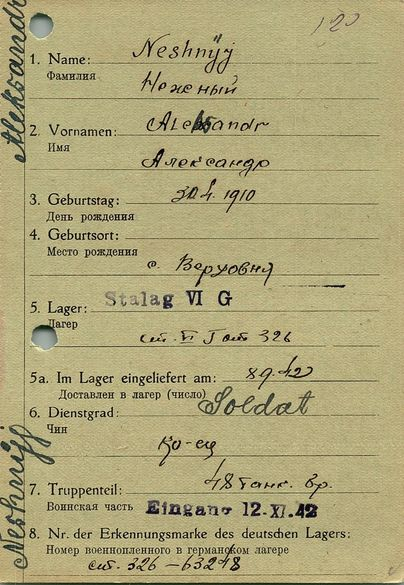 120
Aleksandr
Neshnÿj
1. Name:
Фамилия
Нежный
2. Vornamen: Aleksandr
Имя
Александр
3. Geburtstag: 1910
День рождения
4. Geburtsort:
Место рождения
с. Верховня
5. Lager: Stalag VI G
Лагер
326
5a. Im Lager eingeliefert am: 8 9 42
Доставлен в лагер (число)
6. Dienstgrad: Soldat
Чин
7. Truppenteil: 48 танк. бр.
Воинская часть Eingang 12. XI. 42
8. Nr. der Erkennungsmarke des deutschen Lagers:
Номер военнопленного в германском лагере
326-63248
Neshnÿj